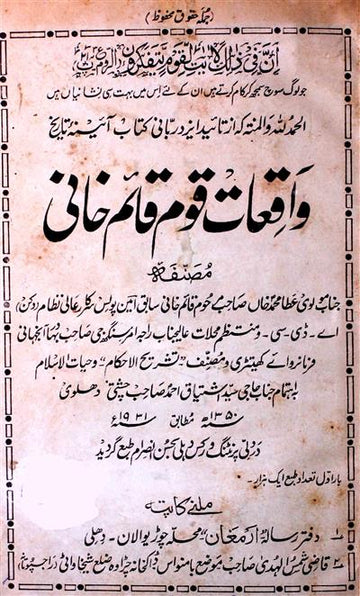 (جملہ حقوق محفوظ)
اِنَّ فِیْ ذٰلِکَ لَاٰیٰتٍ لِّقَوْمٍ یَّتَفَکَّرُوْنَ
جو لوگ سوچ سمجھ کر کام کرتے ہیں ان کے لئے اس میں بہت سی نشانیاں ہیں
الحمد للہ والمنۃ کہ از تائید ایزد ربانی کتاب آئینہ تاریخ
واقعات قوم قائم خانی
مصنفہ
جناب مولوی عطا محمد خاں صاحب مرحوم قائم خانی سابق امین پولس سرکار عالی نظام (دکن)
اے۔ ڈی۔ سی۔ و منتظم محلات عالیجناب راجہ امر سنگھ جی صاحب بہادر آنجہانی
فرمانروائے کھیتڑی و مصنف "تشریح الاحکام" و حیات الاسلام
باہتمام جناب حاجی سید اشتیاق احمد صاحب چشتی دھلوی
۱۳۵۰ھ مطابق ۱۹۳۱ء
در دلی پرنٹنگ ورکس دہلی بحسن انصرام طبع گردید
بار اول تعداد طبع ایک ہزار۔
ملنے کا پتہ
۱؎ دفتر رسالہ ارمغان محلہ چوڑیوالان۔ دھلی
۲؎ قاضی شمس الہدیٰ صاحب موضع بامنواس ڈاکخانہ چڑاوہ ضلع شیخاواٹی (راجپوتانہ)